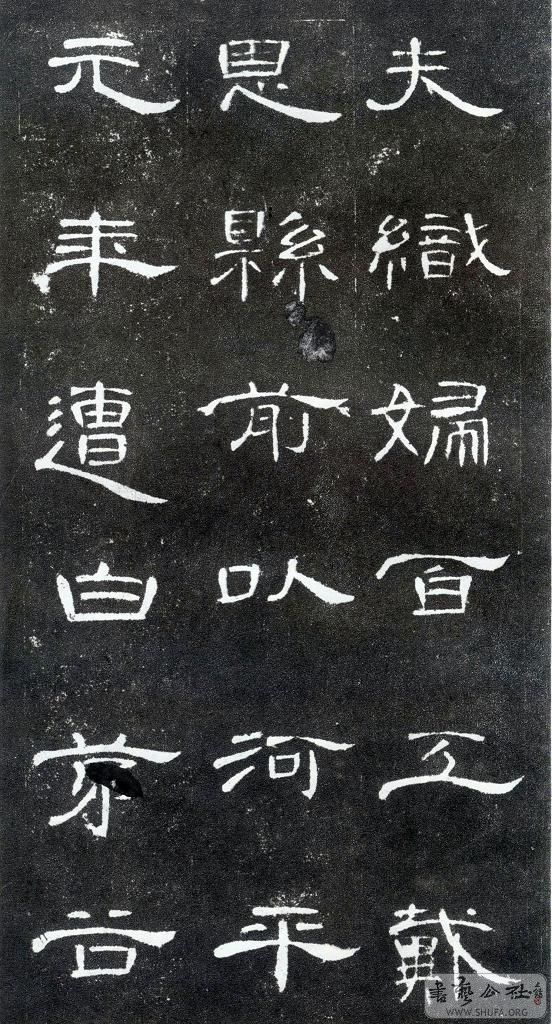 夫織婦百工戴
恩縣前以河平
元年遭白茅谷
書藝公社
WWW.SHUFA.ORG